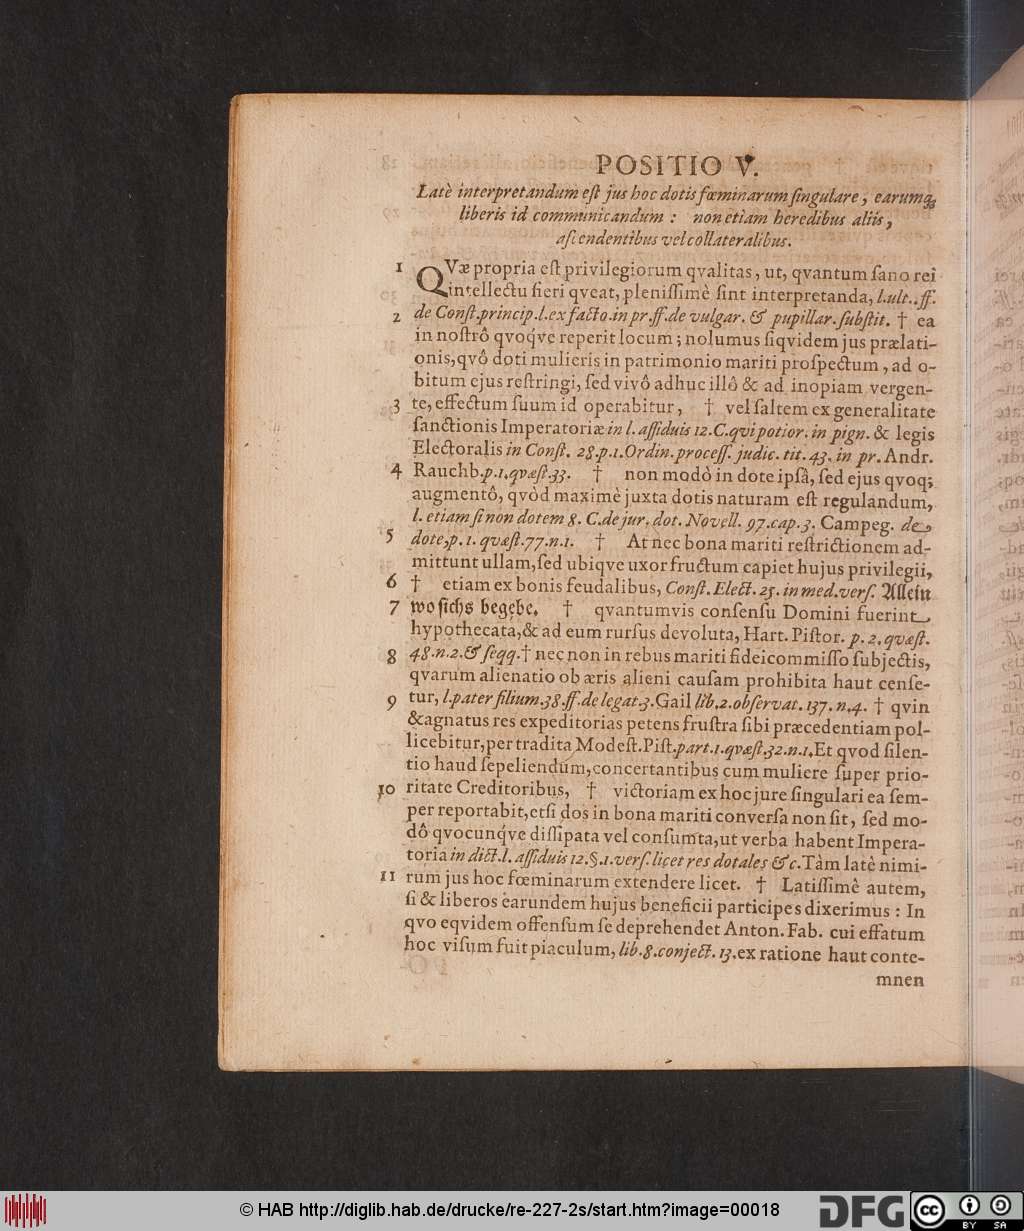 POSITIO V.
Latè interpretandum eſt jus hoc dotis fœminarum ſingulare, earumq;
liberis id communicandum: non etiam heredibus aliis,
aſcendentibus vel collateralibus.
1 QVæ propria eſt privilegiorum qvalitas, ut, qvantum ſano rei
intellectu fieri qveat, pleniſſimè ſint interpretanda, l.ult. ff.
2 de Conſt.princip.l.ex facto.in pr.ff.de vulgar. & pupillar.ſubſtit. † ea
in noſtrô qvoq́ve reperit locum; nolumus ſiqvidem jus prælati-
onis,qvô doti mulieris in patrimonio mariti proſpectum, ad o-
bitum ejus reſtringi, ſed vivô adhuc illô & ad inopiam vergen-
3 te, effectum ſuum id operabitur, † vel ſaltem ex generalitate
ſanctionis Imperatoriæ in l. aſſiduis 12.C.qvi potior. in pign. & legis
Electoralis in Conſt. 28.p.1.Ordin.proceſſ. judic. tit. 43. in pr. Andr.
4 Rauchb.p.1.qvæſt.33. † non modò in dote ipſâ, ſed ejus qvoq;
augmentô, qvòd maximè juxta dotis naturam eſt regulandum,
l. etiam ſi non dotem 8. C.de jur. dot. Novell. 97.cap.3. Campeg. de
5 dote,p. 1. qvæſt.77.n.1. † At nec bona mariti reſtrictionem ad-
mittunt ullam,ſed ubiqve uxor fructum capiet hujus privilegii,
6 † etiam ex bonis feudalibus, Conſt. Elect. 25. in med.verſ. Allein
7 wo ſichs begebe. † qvantumvis conſenſu Domini fuerint
hypothecata,& ad eum rurſus devoluta, Hart. Piſtor. p. 2. qvæſt.
8 48.n.2.& ſeqq.† nec non in rebus mariti fideicommiſſo ſubjectis,
qvarum alienatio ob æris alieni cauſam prohibita haut cenſe-
9 tur, l.pater filium.38.ff.de legat.3.Gail lib.2.obſervat. 137. n.4. † qvin
&agnatus res expeditorias petens fruſtra ſibi præcedentiam pol-
licebitur,per tradita Modeſt.Piſt.part.1.qvæſt.32.n.1.Et qvod ſilen-
tio haud ſepeliendum,concertantibus cum muliere ſuper prio-
10 ritate Creditoribus, † victoriam ex hoc jure ſingulari ea ſem-
per reportabit,etſi dos in bona mariti converſa non ſit, ſed mo-
dô qvocunq́ve diſſipata vel conſumta,ut verba habent Impera-
toria in dict.l. aſſiduis 12.§.1.verſ. licet res dotales &c.Tàm latè nimi-
11 rum jus hoc fœminarum extendere licet. † Latiſſimè autem,
ſi & liberos earundem hujus beneficii participes dixerimus: In
qvo eqvidem offenſum ſe deprehendet Anton. Fab. cui effatum
hoc viſum fuit piaculum, lib.8.conject. 13.ex ratione haut conte-
mnen
© HAB http://diglib.hab.de/drucke/re-227-2s/start.htm?image=00018
DFG
cc BY SA